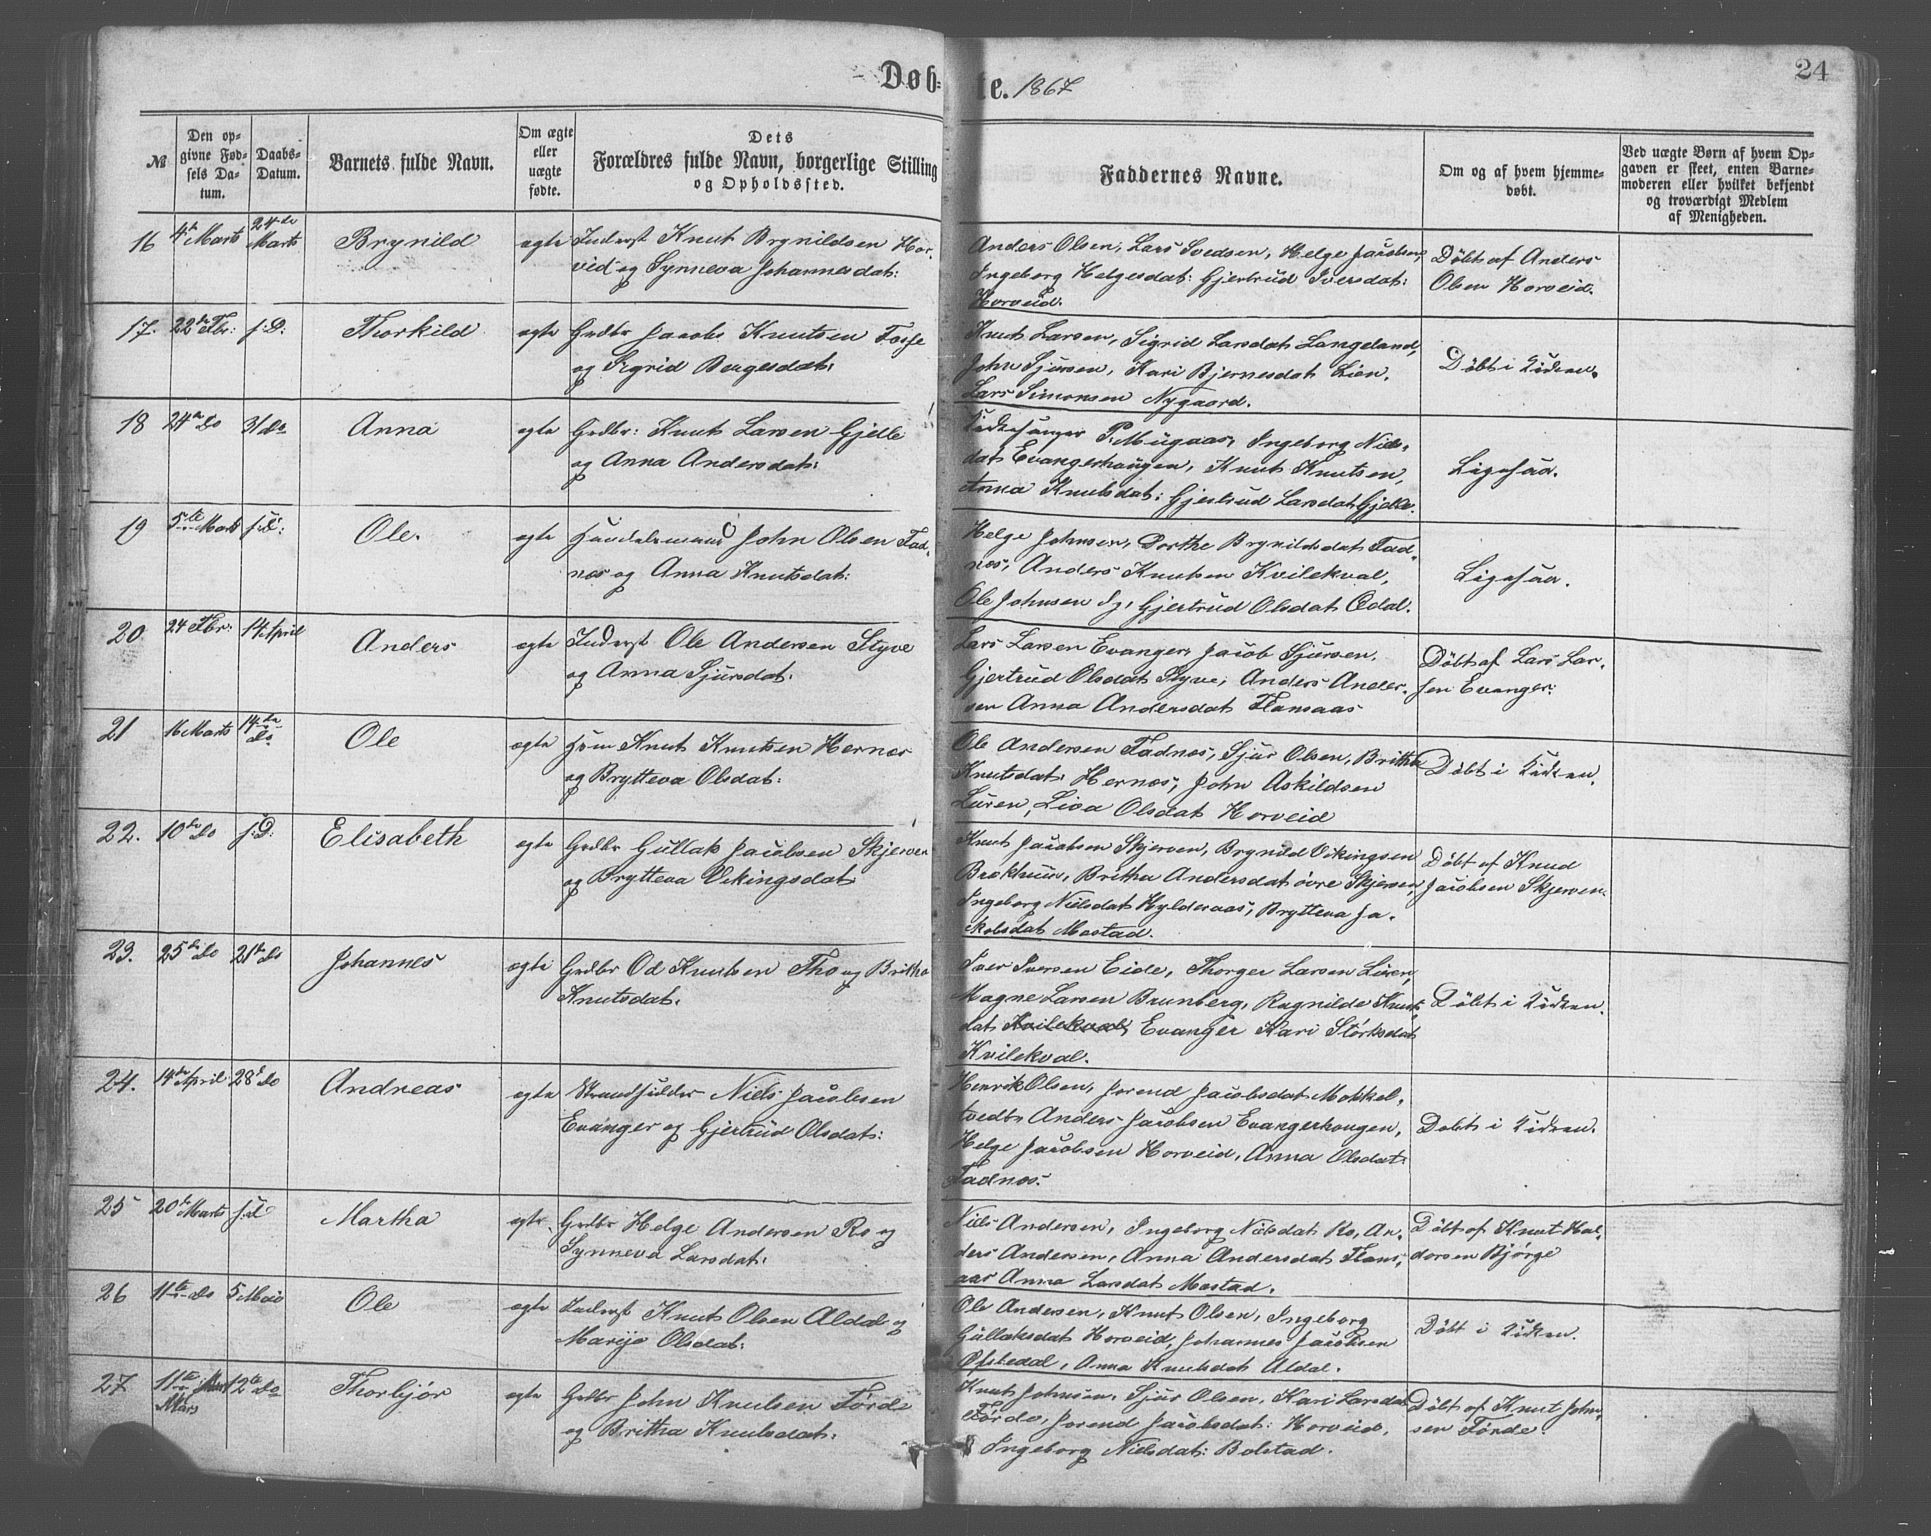 Døbte. 1867
24
№
Den opgivne Fødsels Datum.
Daabs-Datum.
Barnets fulde Navn.
Om ægte eller uægte fødte.
Dets Forældres fulde Navn, borgerlige Stilling og Opholdssted.
Faddernes Navne.
Om og af hvem hjemmedøbt.
Ved uægte Børn af hvem Opgaven er skeet, enten Barnemoderen eller hvilket bekjendt og troværdigt Medlem af Menigheden.
16 4de Marts 24de Marts Brynild ægte Inderst Knut Brynildsen Hor-
vid og Synneva Johannesdat:
Anders Olsen, Lars Ivedsen, Helge Jacobsen,
Ingeborg Helgesdat: Gjertrud Iversdat:
Horveid.
Döbt af Anders
Olsen Horveid.
17. 22de Fbr: f.D: Thorkild ægte Grdbr Jacob Knutsen Fosse
og Sigrid Borgesdat:
Knut Larsen, Sigrid Larsdat Langeland,
John Sjursen, Kari Bjernesdat Lien.
Lars Simonsen Nygaard.
Döbt i Kirken.
18 24de do 31 do Anna ægte Grdbr: Knut Larsen Gjelle
og Anna Andersdat:
Kirkesanger P. Mugaas, Ingeborg Niels-
dat Evangerhaugen, Knut Knutsen,
Anna Knutsdat: Gjertrud Larsdat Gjelle.
Ligesaa.
19 5te Marts f.D: Ole. ægte Handelsmand John Olsen Fad-
næs og Anna Knutsdat:
Helge Johnsen, Dorthe Brynildsdat Fad-
næs, Anders Knutsen Kvilekval,
Ole Johnsen Gjertrud Olsdat Ødal.
Ligesaa.
20 24 Fbr: 14 April Anders ægte Inderst Ole Andersen Styve
og Anna Sjursdat:
Lars Larsen Evanger, Jacob Sjursen,
Gjertrud Olsdat Styve, Anders Ander-
sen Anna Andersdat Flamaas
Döbt af Lars Lar-
sen Evanger:
21 16 Marts 14de do Ole ægte Hsm Knut Knutsen Hernæs
og Brytteva Olsdat:
Ole Andersen Fadnæs, Sjur Olsen, Britha
Knutsdat: Hernæs, John Askildsen
Luren, Lisa Olsdat Horveid
Döbt i Kirken.
22. 10de do f.D: Elisabeth ægte Grdbr Gullak Jacobsen Skjerven
og Brytteva Vikingsdat
Knut Jacobsen Skjerven, Brynild Vikingsen
Brækhuus, Britha Andersdat övre Skjerven,
Ingeborg Nielsdat Hylderaas, Brytteva Ja-
kobsdat Mostad.
Döbt af Knud
Jacobsen Skjerven.
23. 25de do 21de do Johannes ægte Grdbr Od Knutsen Tho og Britha
Knutsdat.
Iver Iversen Eide, Thorger Larsen Luren,
Magne Larsen Brunberg, Ragnilde Knuts-
dat Kvilekval, Evanger Kari Störksdat
Kvilekval.
Döbt i Kirken.
24. 14de April 28de do Andreas ægte Strandsidder Niels Jacobsen
Evanger og Gjertrud Olsdat:
Henrik Olsen, Jorend Jacobsdat Mokkel-
tvedt, Anders Jacobsen Evangerhougen,
Helge Jacobsen Horveid, Anna Olsdat
Fadnæs.
Döbt i Kirken.
25 20de Marts f.d Martha ægte. Grdbr Helge Andersen Ro og
Synneva Larsdat:
Niels Andersen, Ingeborg Nielsdat Ro, An-
ders Andersen, Anna Andersdat Flam-
aas Anna Larsdat Mostad.
Döbt af Knut Hal-
dorsen Bjørge
26 11te do 5 Mai Ole ægte Inderst Knut Olsen Aldal og
Marije Olsdat:
Ole Andersen, Knut Olsen, Ingeborg
Gullaksdat Horveid, Johannes Jacobsen
Øfstedal, Anna Knutsdat Aldal.
Döbt i Kirken.
27 11te Mars 12te do Thorbjör ægte Grdbr John Knutsen Förde
og Britha Knutsdat:
Knut Johnsen, Sjur Olsen, Kari Larsdat
Förde, Jorend Jacobsdat: Horveid,
Ingeborg Nielsdat: Bolstad.
Döbt af Knut John-
sen Förde.